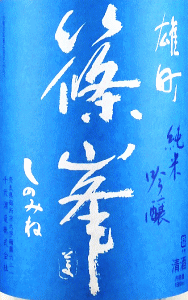 雄町
篠峯
純米
吟醸
しのみね
清酒